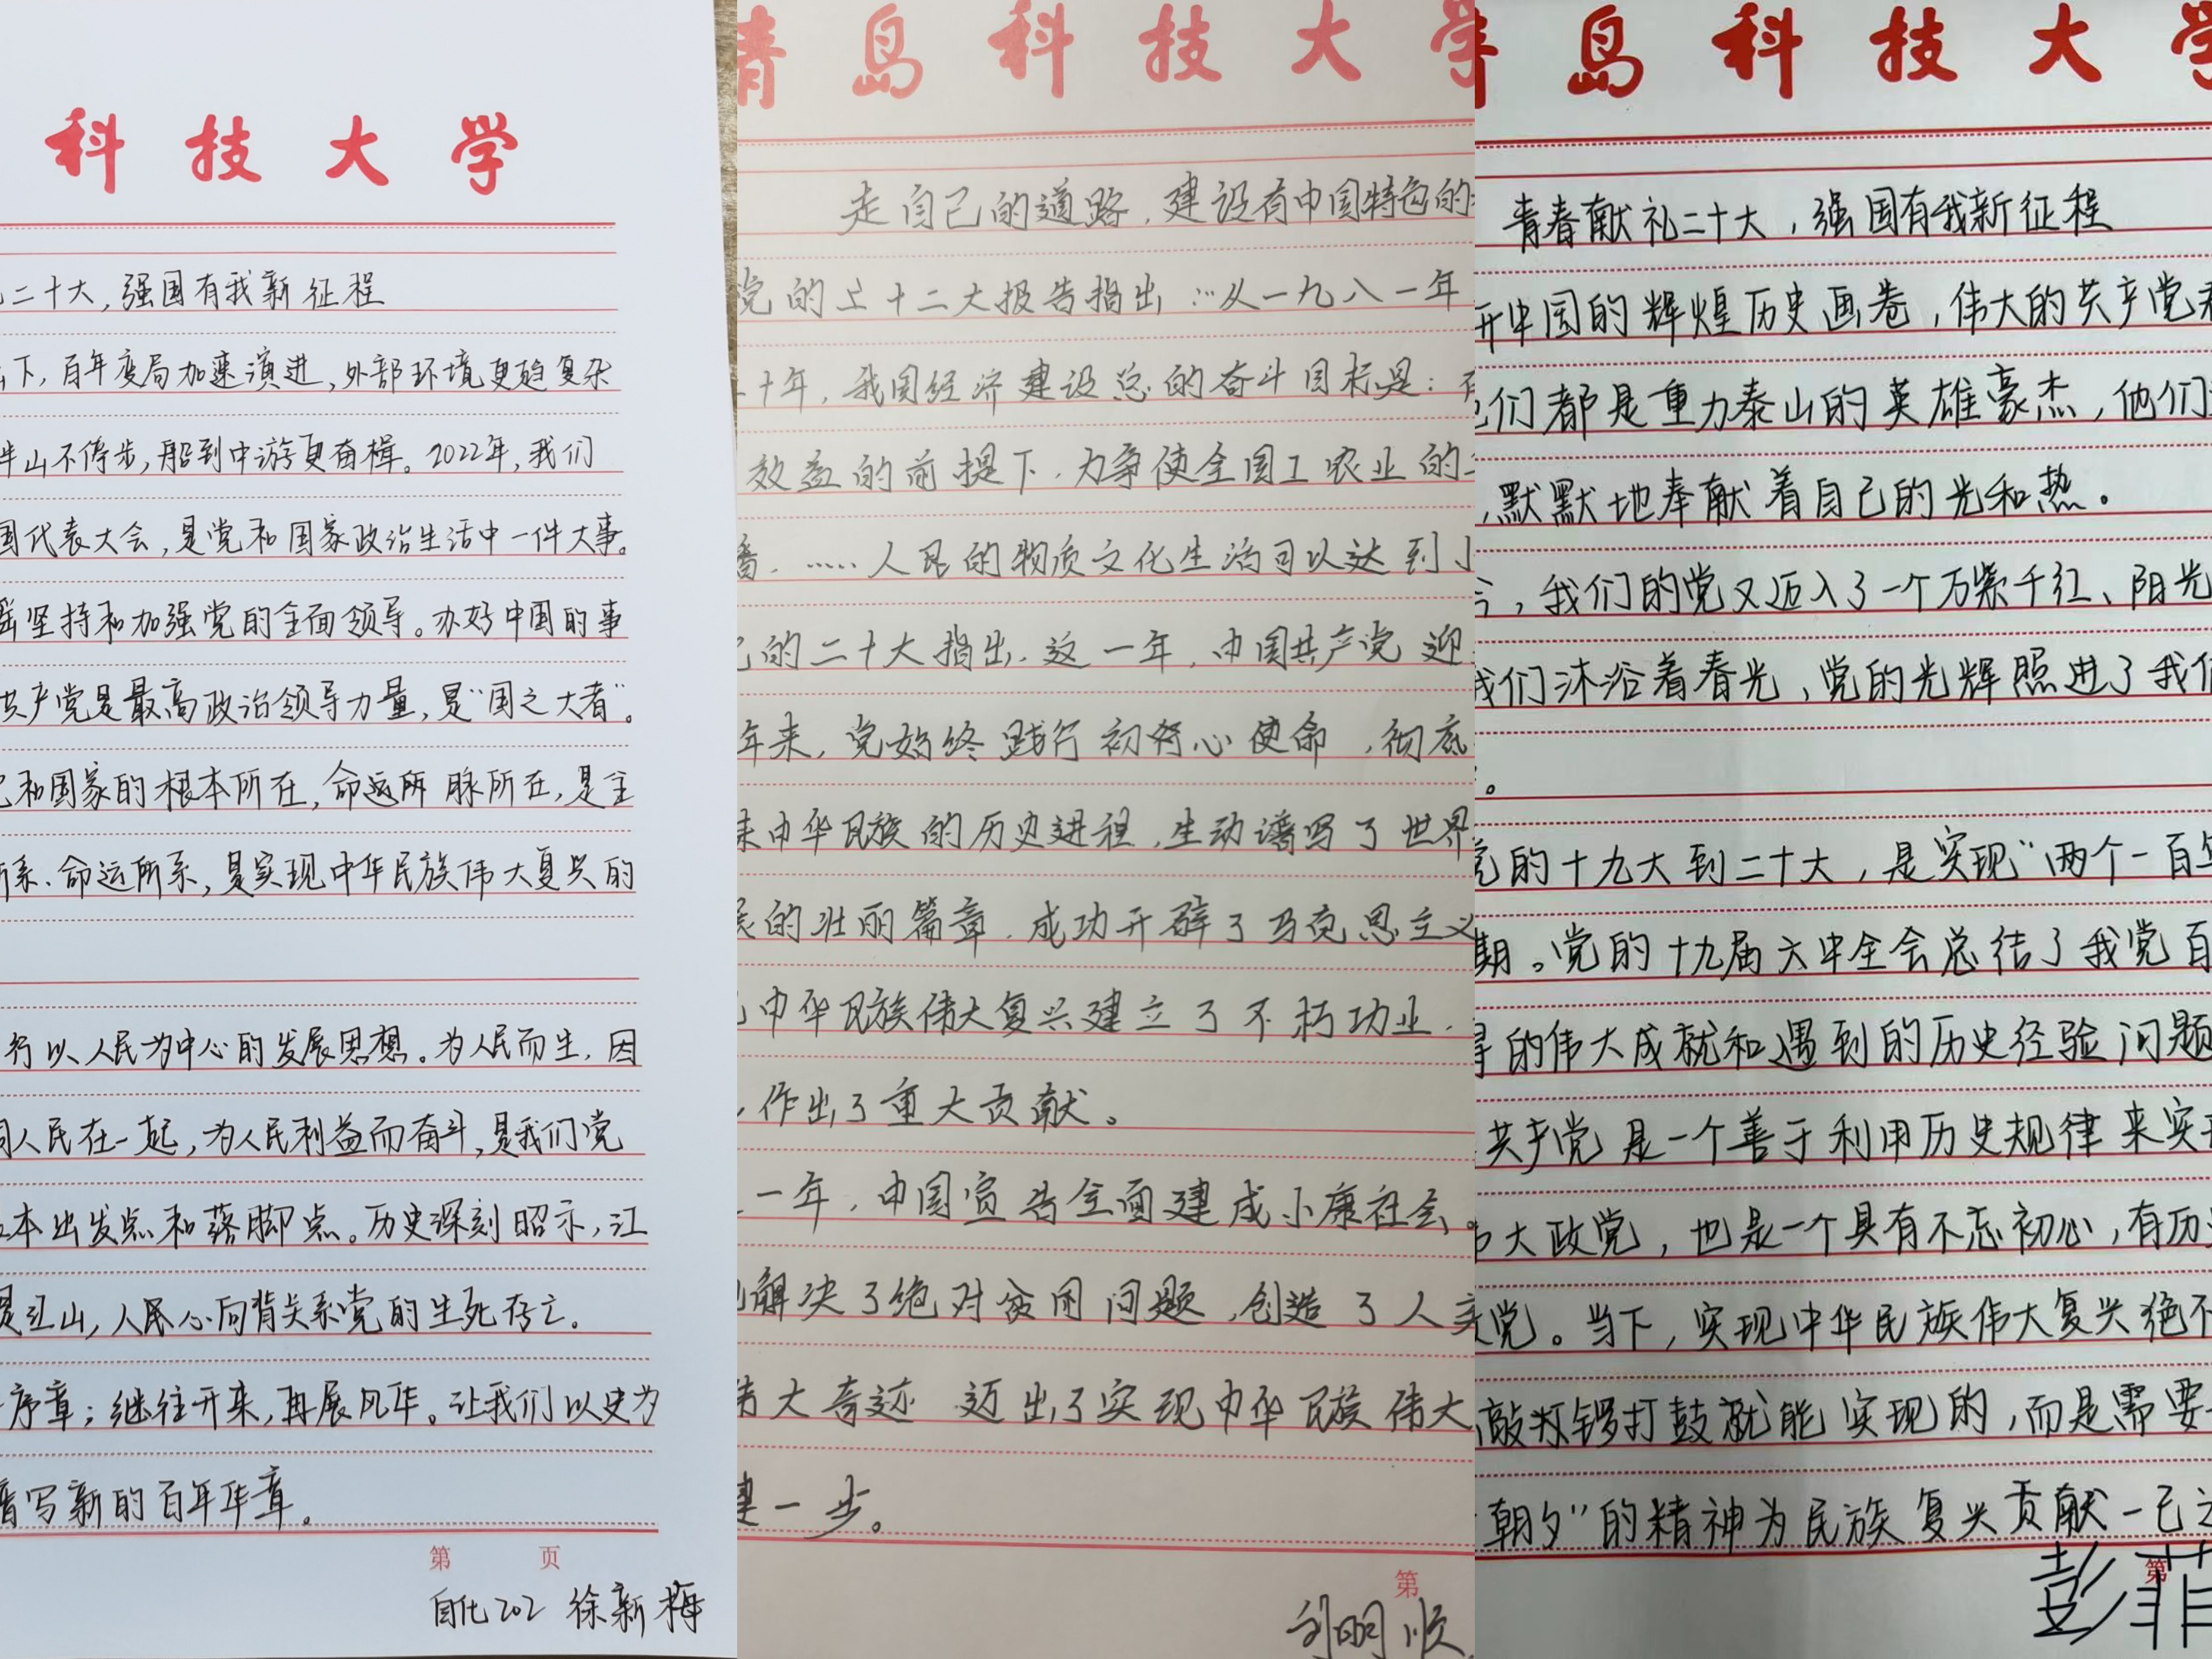 科技大学
二十大,强国有我新征程
下,百年变局加速演进,外部环境更趋复杂
半山不停步,船到中游更奋楫。2022年,我们
国代表大会,是党和国家政治生活中一件大事。
坚持和加强党的全面领导。办好中国的事
共产党是最高政治领导力量,是“国之大者”。
和国家的根本所在,命运所 脉所在,是全
所系、命运所系,是实现中华民族伟大复兴的
行以人民为中心的发展思想。为人民而生,因
同人民在一起,为人民利益而奋斗,是我们党
本出发点和落脚点。历史深刻昭示,江
是江山,人民心向背关系党的生死存亡。
序章;继往开来,再展风华。让我们以史为
谱写新的百年华章。
第 页
自化202 徐新梅
青岛科技大学
走自己的道路,建设有中国特色的
党的上十二大报告指出:“从一九八一年
十年,我国经济建设总的奋斗目标是:
效益的前提下,力争使全国工农业的
番,……人民的物质文化生活可以达到小
的二十大指出,这一年,中国共产党迎
年来,党始终践行初心使命,彻底
来中华民族的历史进程,生动谱写了世界
的壮丽篇章,成功开辟了马克思主义
中华民族伟大复兴建立了不朽功业,
作出了重大贡献。
一年,中国宣告全面建成小康社会。
解决了绝对贫困问题,创造了人类
伟大奇迹 迈出了实现中华民族伟大
键一步。
第
刘明顺
岛科技大学
青春献礼二十大,强国有我新征程
开中国的辉煌历史画卷,伟大的共产党
他们都是重力泰山的英雄豪杰,他们
,默默地奉献着自己的光和热。
今,我们的党又迈入了一个万紫千红、阳光
我们沐浴着春光,党的光辉照进了我们
。
党的十九大到二十大,是实现“两个一百年
期。党的十九届六中全会总结了我党百
得的伟大成就和遇到的历史经验问题
共产党是一个善于利用历史规律来实现
大政党,也是一个具有不忘初心,有历史
党。当下,实现中华民族伟大复兴绝不
敲锣打鼓就能实现的,而是需要
朝夕”的精神为民族复兴贡献一己之
第
彭菲